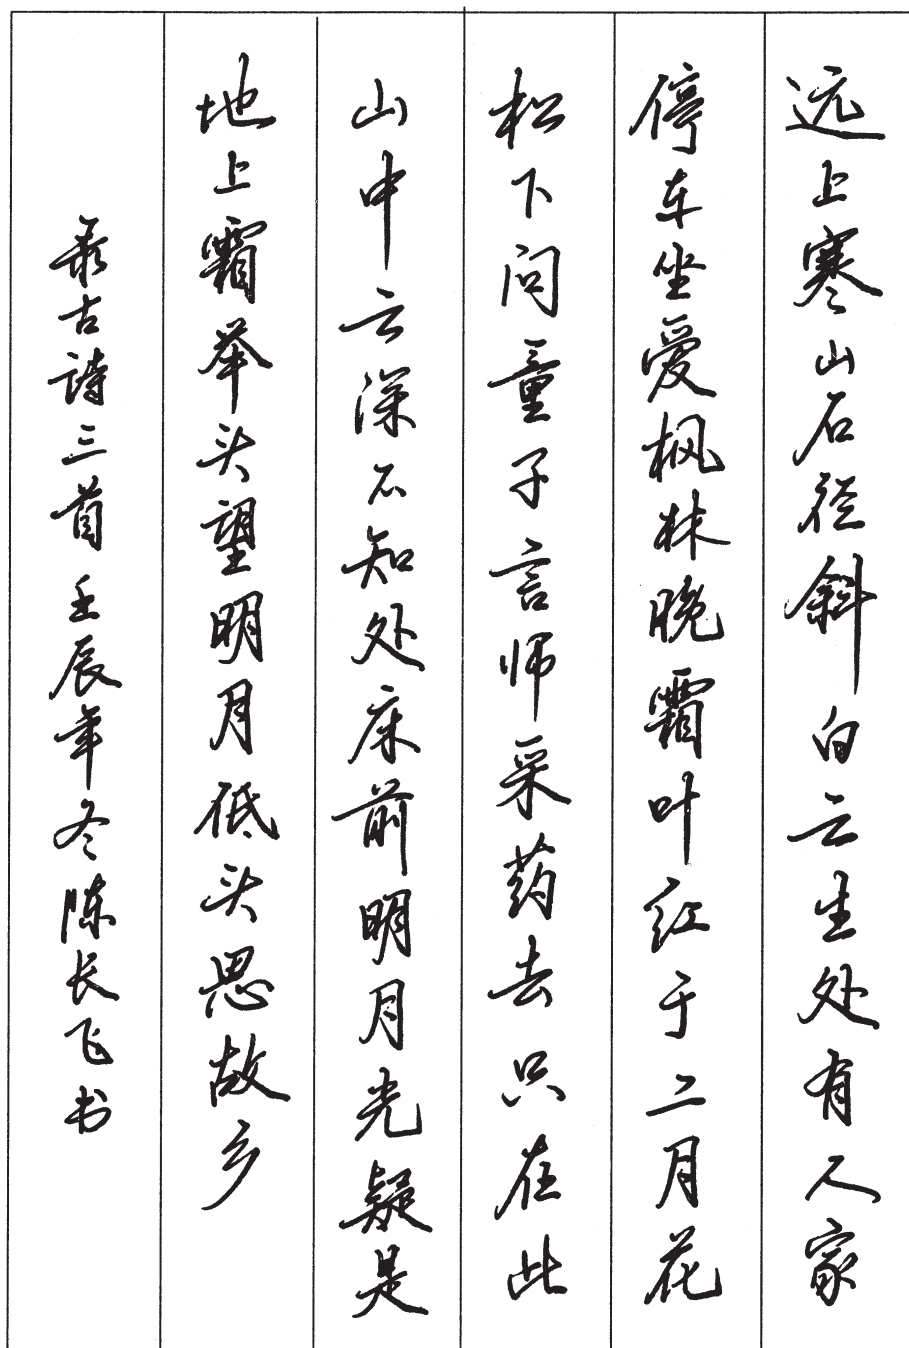 远上寒山石径斜白云生处有人家
停车坐爱枫林晚霜叶红于二月花
松下问童子言师采药去只在此
山中云深不知处床前明月光疑是
地上霜举头望明月低头思故乡
录古诗三首壬辰年冬陈长飞书